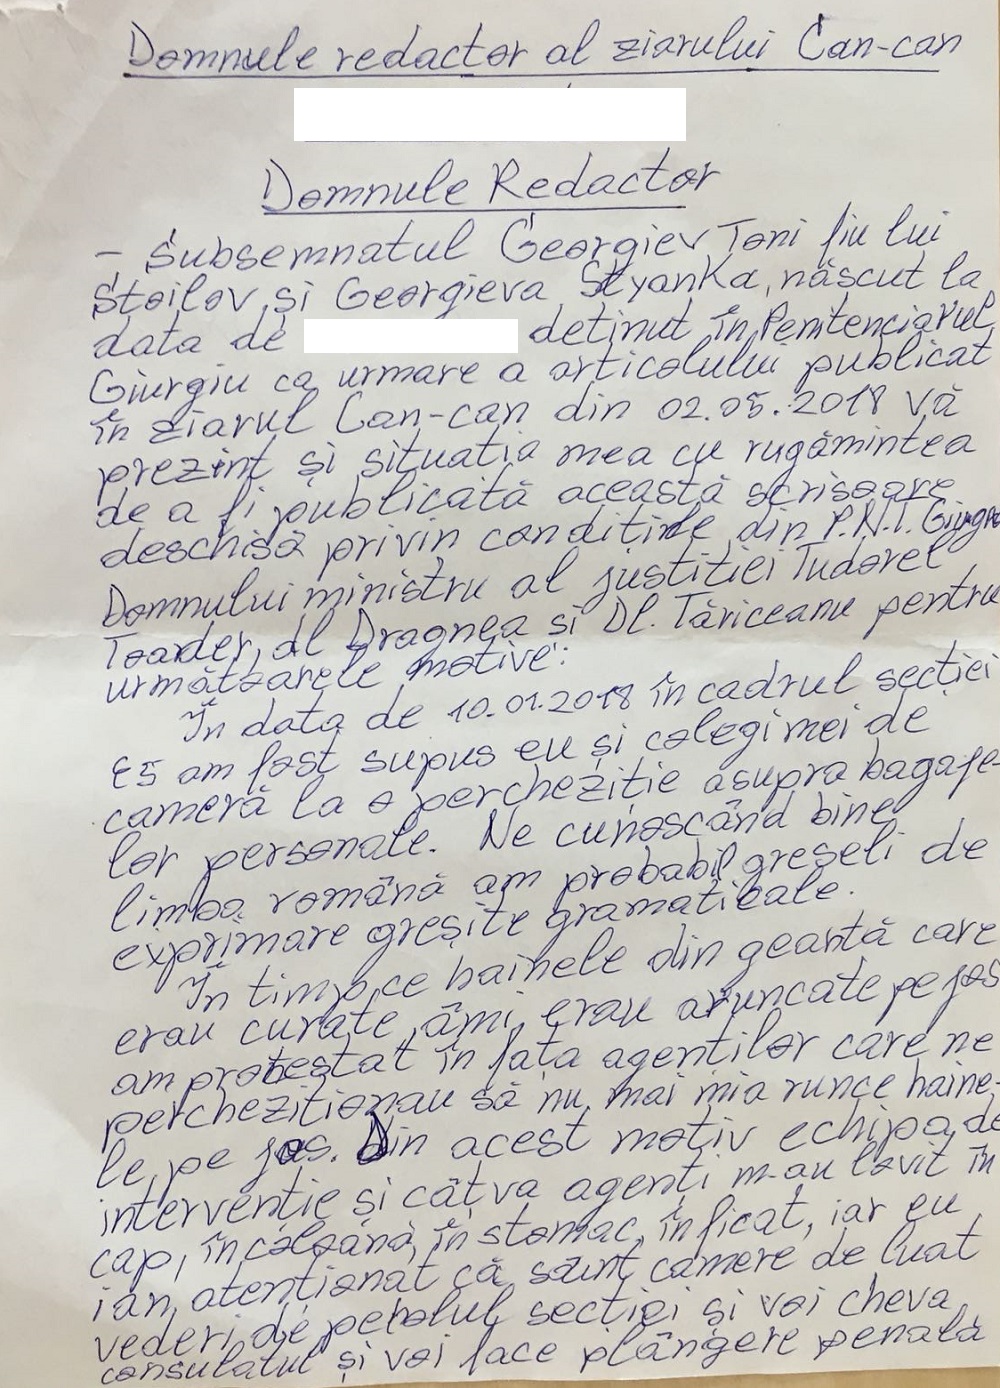 Domnule redactor al ziarului Can-can
Domnule Redactor
- Subsemnatul Georgiev Toni fiu lui
Stoilov și Georgieva Styanka, născut la
data de deținut în Penitenciarul
Giurgiu ca urmare a articolului publicat
în ziarul Can-can din 02.05.2018 vă
prezint și situația mea cu rugămintea
de a fi publicată această scrisoare
deschisă privin condițiile din P.N.T. Giurgiu
Domnului ministru al justiției Tudorel
Toader, dl Dragnea si Dl. Tăriceanu pentru
următoarele motive:
În data de 10.01.2018 în cadrul secției
E5 am fost supus eu și colegi mei de
cameră la o percheziție asupra bagaje-
lor personale. Ne cunoscând bine
limba română am probabil greșeli de
exprimare greșite gramaticale.
În timp ce hainele din geantă care
erau curate âmi erau aruncate pe jos
am protestat în fața agenților care ne
percheziționau să nu mai mia runce haine-
le pe jos. Din acest motiv echipa de
intervenție și câțva agenți m-au lovit în
cap, în coloană, în stomac, în ficat, iar eu
ian atenționat că sânt camere de luat
vederi de petolul secției și voi chema
consulatul și voi face plângere penală